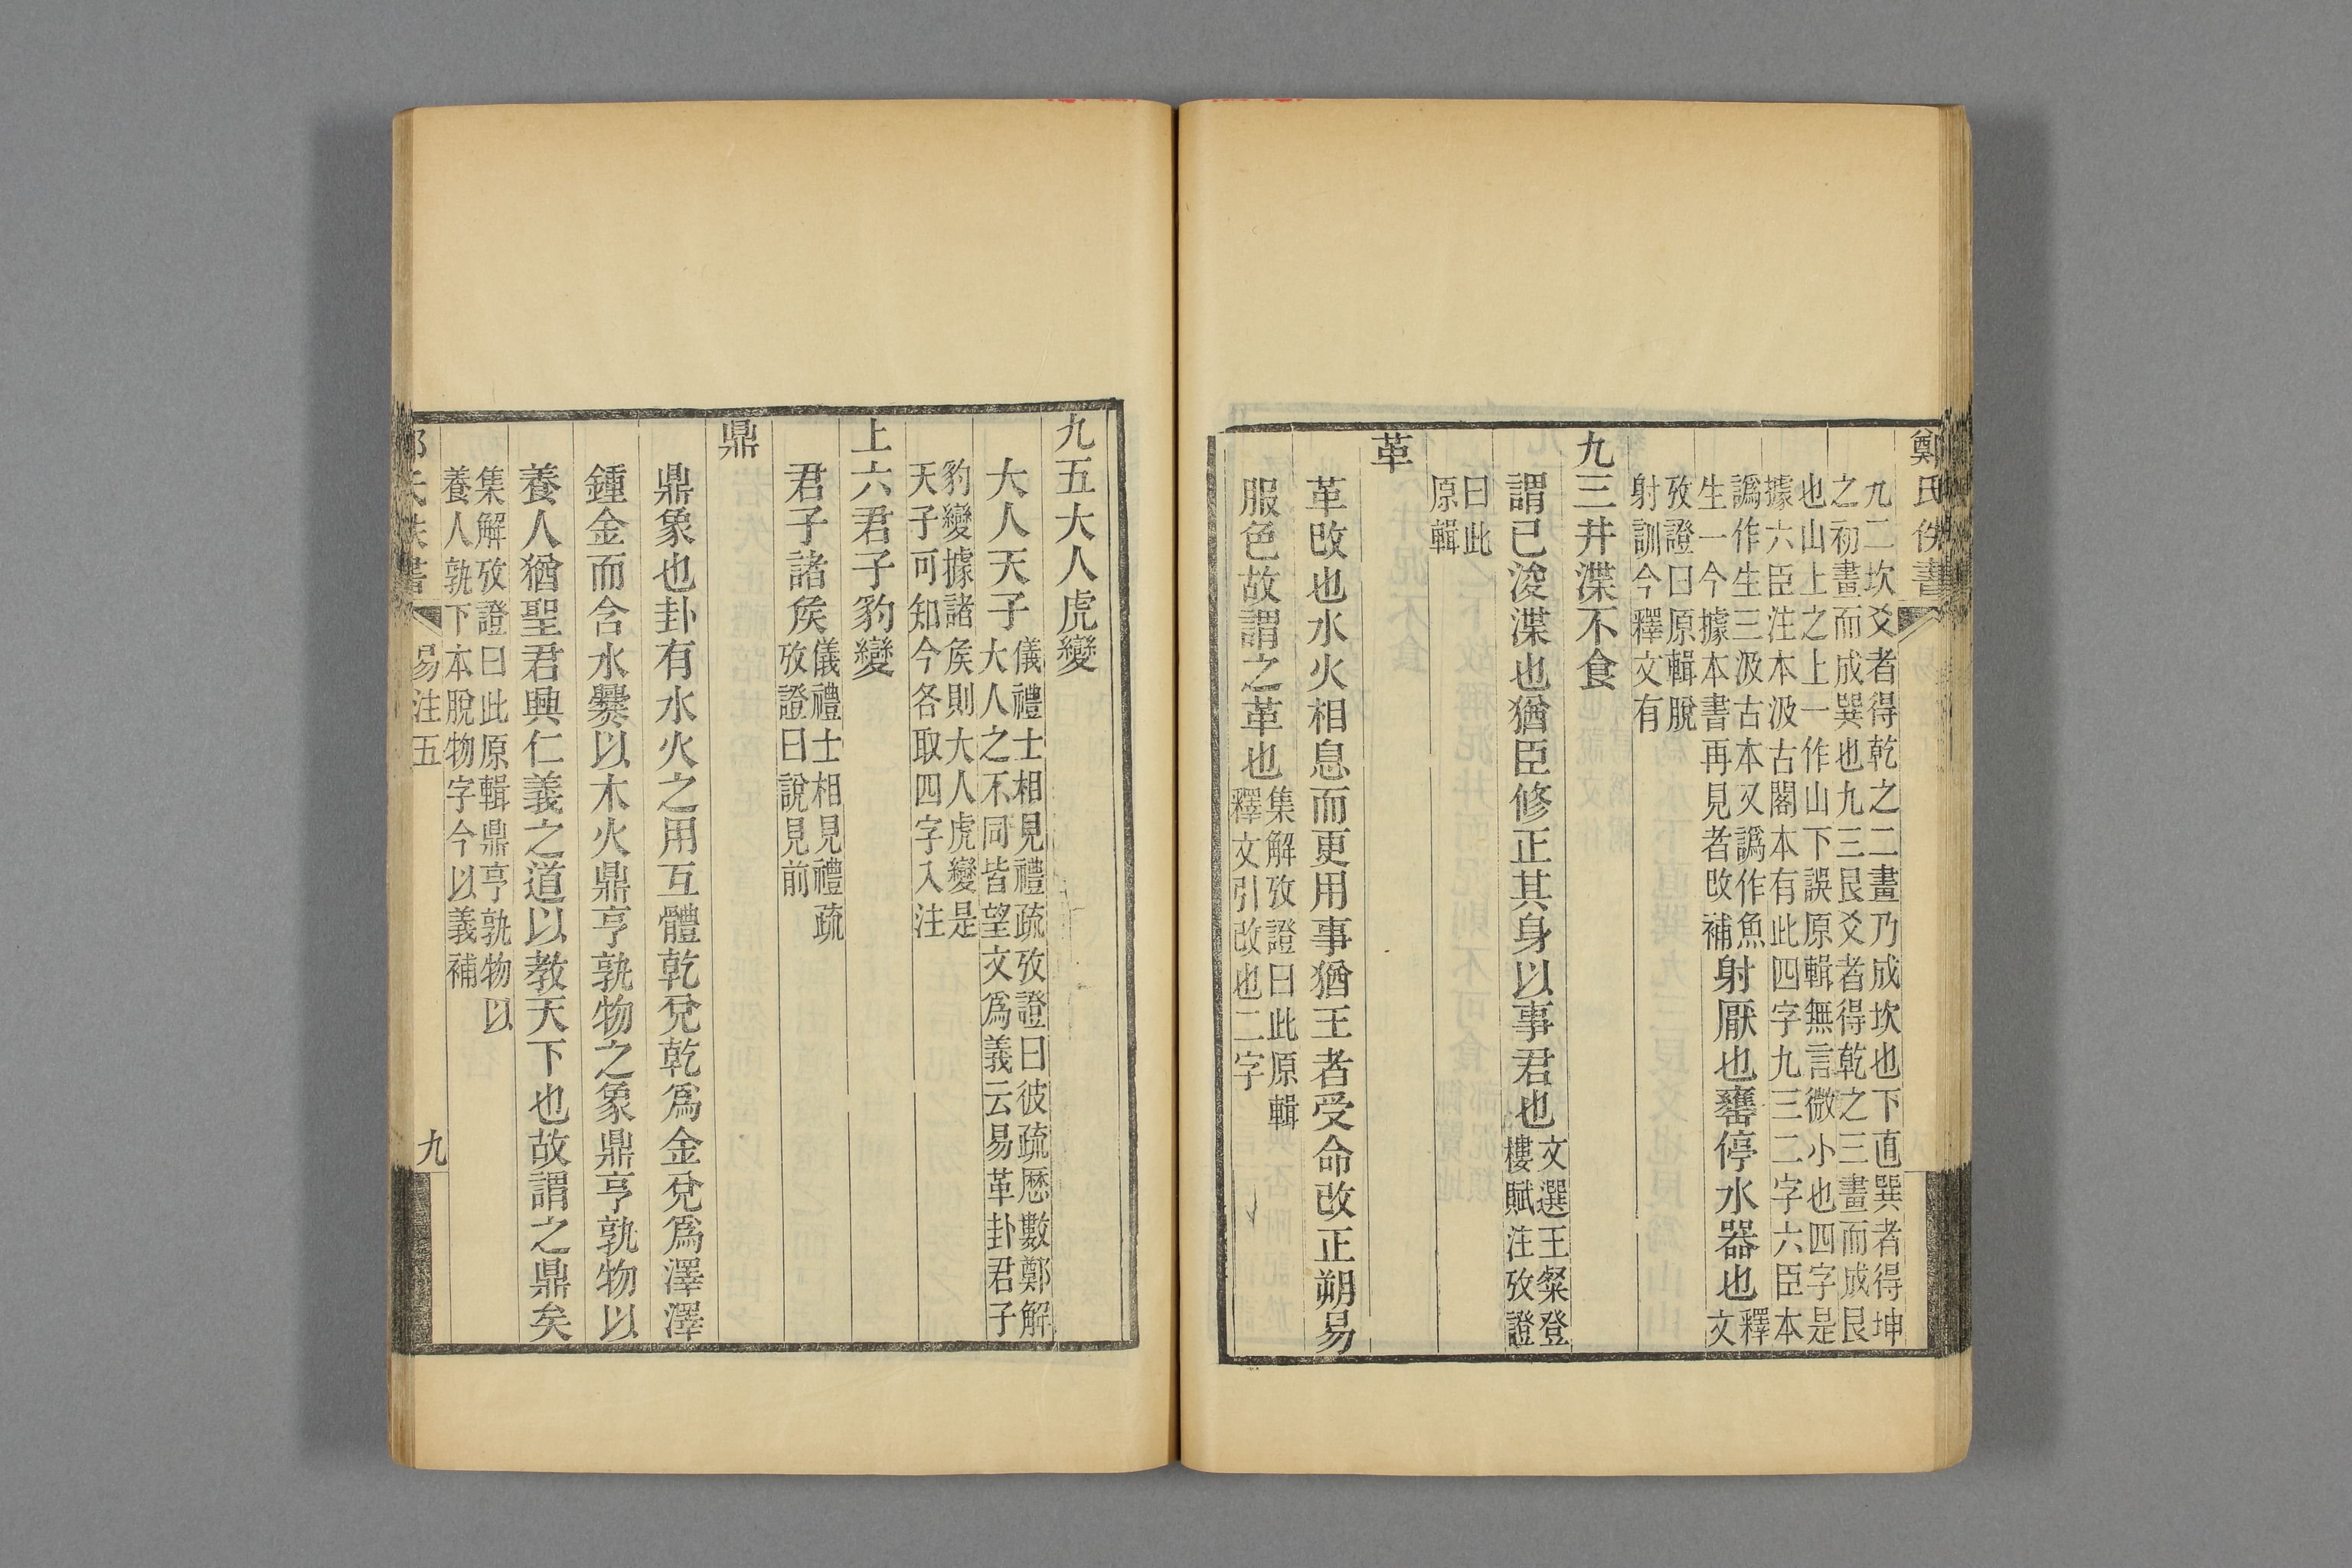 鄭氏佚書
九二坎爻者得乾之二畫乃成坎也下直巽者得坤
之初畫而成巽也九三艮爻者得乾之三畫而成艮
也山上之上一作山下誤原輯無言微小也四字是
據六臣注本汲古閣本有此四字九三二字六臣本
譌作生三汲古本又譌作魚
生一今據本書再見者改補
射厭也罋停水器也
釋
文
攷證曰原輯脫
射訓今釋文有
九三井渫不食
謂已浚渫也猶臣修正其身以事君也
文選王粲登
樓賦注攷證
曰此
原輯
革
革改也水火相息而更用事猶王者受命改正朔易
服色故謂之革也
集解攷證曰此原輯
釋文引改也二字
九五大人虎變
大人天子
儀禮士相見禮疏攷證曰彼疏厯數鄭解
大人之不同皆望文爲義云易革卦君子
豹變據諸矦則大人虎變是
天子可知今各取四字入注
上六君子豹變
君子諸矦
儀禮士相見禮疏
攷證曰說見前
鼎
鼎象也卦有水火之用互體乾兌乾爲金兌爲澤澤
鍾金而含水爨以木火鼎亨孰物之象鼎亨孰物以
養人猶聖君興仁義之道以教天下也故謂之鼎矣
集解攷證曰此原輯鼎亨孰物以
養人孰下本脫物字今以義補
易注五
九